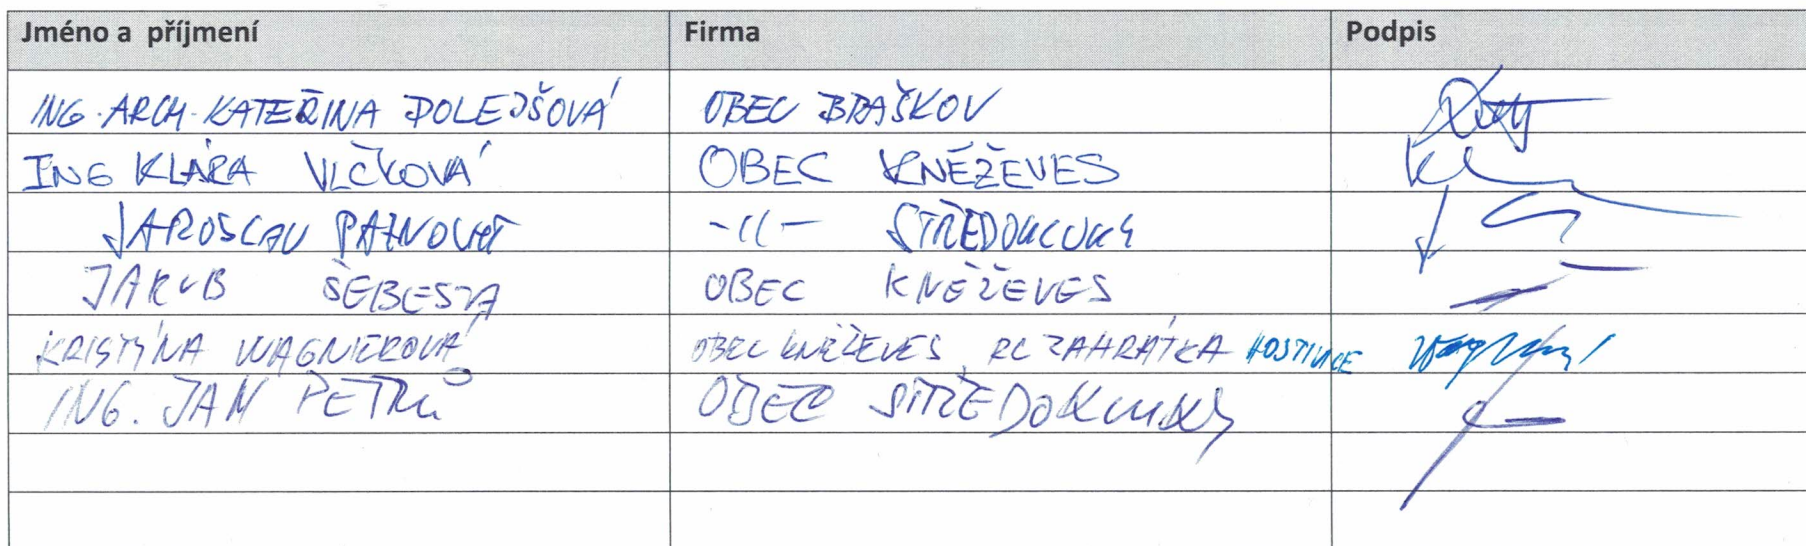 Jméno a příjmení Firma Podpis
ING. ARCH. KATEŘINA DOLEJŠOVÁ OBEC BRAŠKOV
ING KLÁRA VLČKOVÁ OBEC KNĚŽEVES
JAROSLAV -11- STŘEDOKLUKY
JAKUB ŠEBESTA OBEC KNĚŽEVES
KRISTÝNA WAGNEROVÁ OBEC KNĚŽEVES RC ZAHRÁTKA HOSTIVICE
ING. JAN PETRŮ OBEC STŘEDOKLUKY